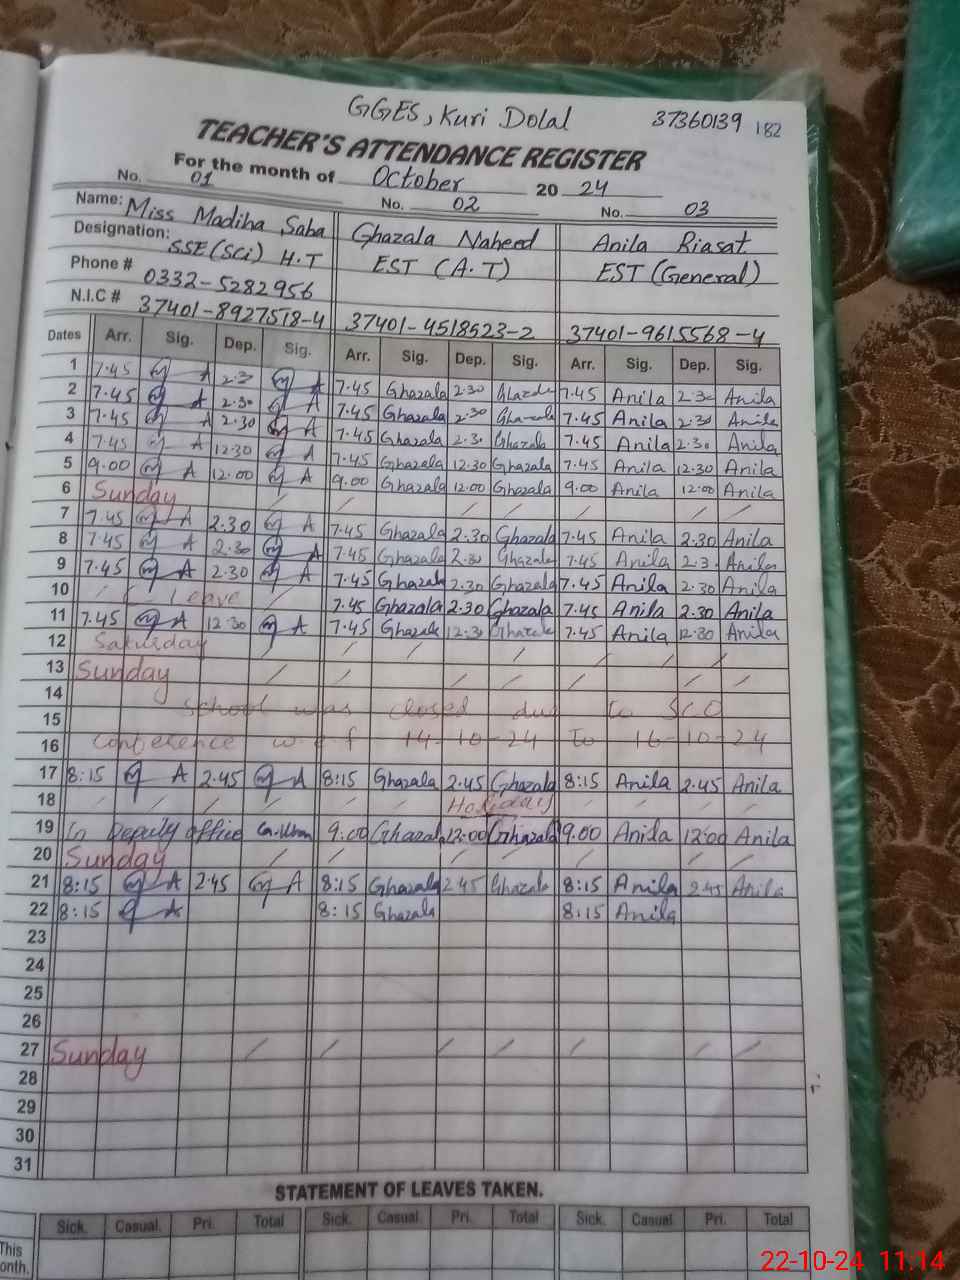 GGES, Kuri Dolal 37360139 182
TEACHER'S ATTENDANCE REGISTER
For the month of October 20 24
No. 01 No. 02 No. 03
Name: Miss Madiha Saba Ghazala Naheed Anila Riasat
Designation: SSE (Sci) H.T EST (A.T) EST (General)
Phone # 0332-5282956
N.I.C # 37401-8927518-4 37401-4518523-2 37401-9615568-4
Dates Arr. Sig. Dep. Sig. Arr. Sig. Dep. Sig. Arr. Sig. Dep. Sig.
1 7.45 A 2.30 A 7.45 Ghazala 2.30 Ghazala 7.45 Anila 2.30 Anila
2 7.45 A 2.30 A 7.45 Ghazala 2.30 Ghazala 7.45 Anila 2.30 Anila
3 7.45 A 2.30 A 7.45 Ghazala 2.30 Ghazala 7.45 Anila 2.30 Anila
4 7.45 A 12.30 A 7.45 Ghazala 12.30 Ghazala 7.45 Anila 12.30 Anila
5 9.00 A 12.00 A 9.00 Ghazala 12.00 Ghazala 9.00 Anila 12.00 Anila
6 Sunday / / / / / / /
7 7.45 A 2.30 A 7.45 Ghazala 2.30 Ghazala 7.45 Anila 2.30 Anila
8 7.45 A 2.30 A 7.45 Ghazala 2.30 Ghazala 7.45 Anila 2.3. Anila
9 7.45 A 2.30 A 7.45 Ghazala 2.30 Ghazala 7.45 Anila 2.30 Anila
10 Leave 7.45 Ghazala 2.30 Ghazala 7.45 Anila 2.30 Anila
11 7.45 A 12.30 A 7.45 Ghazala 12.30 Ghazala 7.45 Anila 12.30 Anila
12 Saturday / / / / / / /
13 Sunday / / / / / / /
14 School was closed due to SCO
15
16 Conference w.e.f 14-10-24 To 16-10-24
17 8:15 A 2.45 A 8:15 Ghazala 2.45 Ghazala 8:15 Anila 2.45 Anila
18 / / / / / / Holiday / / / /
19 to Deputy office 9.00 Ghazala 12:00 Ghazala 9.00 Anila 12:00 Anila
20 Sunday / / / / / / /
21 8:15 A 2.45 A 8:15 Ghazala 2.45 Ghazala 8:15 Anila 2.45 Anila
22 8:15 A 8:15 Ghazala 8:15 Anila
23
24
25
26
27 Sunday / / / / / / /
28
29
30
31
STATEMENT OF LEAVES TAKEN.
Sick. Casual. Pri. Total Sick. Casual. Pri. Total Sick. Casual Pri. Total
This
onth.
22-10-24 11:14